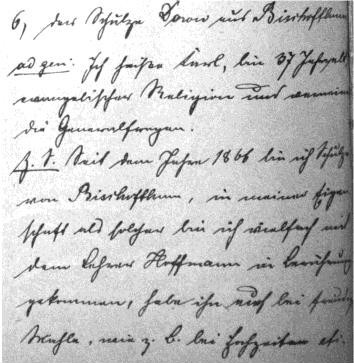 6, der Schulze Doron aus Bischofthum
ad gen: Ich heiße Karl, bin 37 Jahre alt
evangelischer Religion und verneine
die Generalfragen.
z. S. Seit dem Jahre 1866 bin ich Schulze
von Bischofthum, in meiner Eigen
schaft als solcher bin ich vielfach mit
dem Lehrer Hoffmann in Berührung
gekommen, habe ihn auch bei
Mahle, wie z. b. bei Hochzeiten etc.